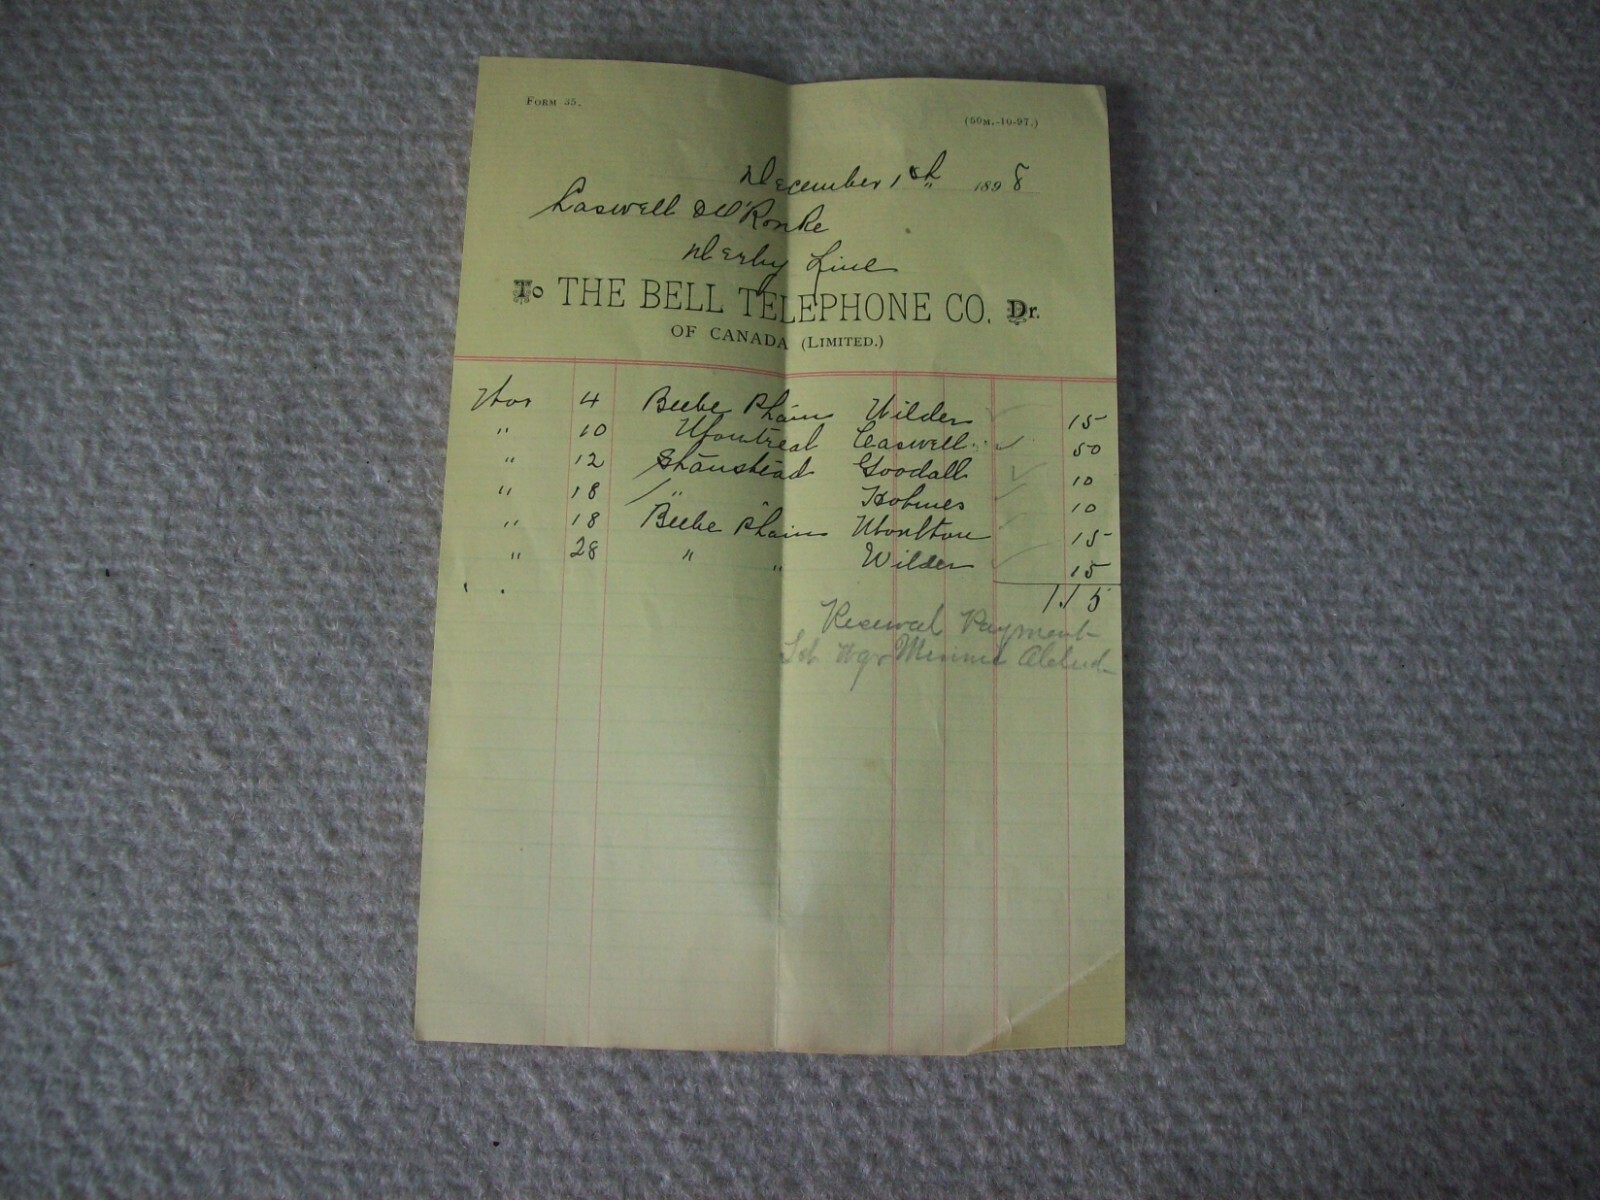 FORM 35.
(50M.-10-97.)
December 1st 1898
Caswell
Derby Line
To THE BELL TELEPHONE CO. Dr.
OF CANADA (LIMITED.)
Nov 4 Beebe Plain Wilder 15
" 10 Montreal Caswell 50
" 12 Stanstead Goodall 10
" 18 " Holmes 10
" 18 Beebe Plain Moulton 15
" 28 " " Wilder 15
1.15
Received Payment
Minnie